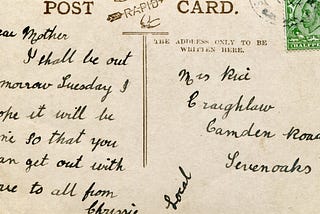 POST CARD.
RAPID
THE ADDRESS ONLY TO BE
WRITTEN HERE.
HALFPE
ear Mother
I shall be out
morrow Tuesday I
ope it will be
ne so that you
an get out with
ve to all from
Chrissie
Mrs Rice
Craighlaw
Camden Road
Sevenoaks
Local